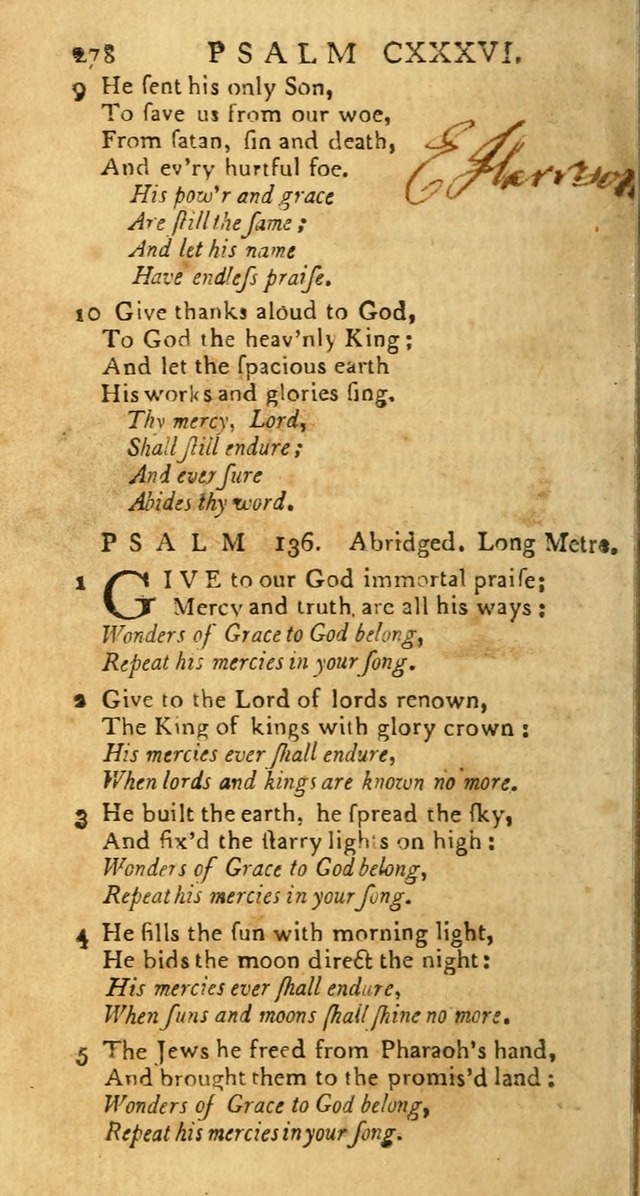 278 PSALM CXXXVI.
9 He ſent his only Son,
To ſave us from our woe,
From ſatan, ſin and death,
And ev'ry hurtful foe.
E Harrison
His pow'r and grace
Are ſtill the ſame;
And let his name
Have endleſs praiſe.
10 Give thanks aloud to God,
To God the heav'nly King;
And let the ſpacious earth
His works and glories ſing.
Thy mercy, Lord,
Shall ſtill endure;
And ever ſure
Abides thy word.
PSALM 136. Abridged. Long Metre.
1 GIVE to our God immortal praiſe;
Mercy and truth, are all his ways:
Wonders of Grace to God belong,
Repeat his mercies in your ſong.
2 Give to the Lord of lords renown,
The King of kings with glory crown:
His mercies ever ſhall endure,
When lords and kings are known no more.
3 He built the earth, he ſpread the ſky,
And fix'd the ſtarry lights on high:
Wonders of Grace to God belong,
Repeat his mercies in your ſong.
4 He fills the ſun with morning light,
He bids the moon direct the night:
His mercies ever ſhall endure,
When ſuns and moons ſhall ſhine no more.
5 The Jews he freed from Pharaoh's hand,
And brought them to the promis'd land;
Wonders of Grace to God belong,
Repeat his mercies in your ſong.